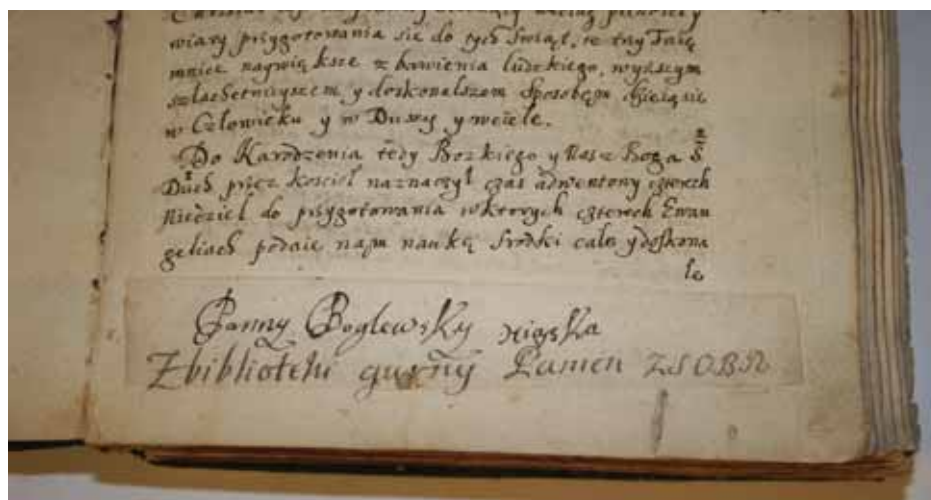 wiary przygotowania się do tych Swiąt, te trzy Taię
mnice nagwiększe zbawienia ludzkiego, wyższym
szlachetnieyszem y doskonalszem sposobem dzieią się
w Człowieku y w Duszy y wciele.
Do Narodzenia tedy Bozkiego y Nasz Boga S
Duch przez kosciół naznaczył czas adwentony czterech
Niedziel do przygotowania wktorych czterech Ewan
geliach podaie nam naukę srodki całe y doskona
le
Panny Boglewsky xiąszka
Zbiblioteki gurny Panien ZSOBN